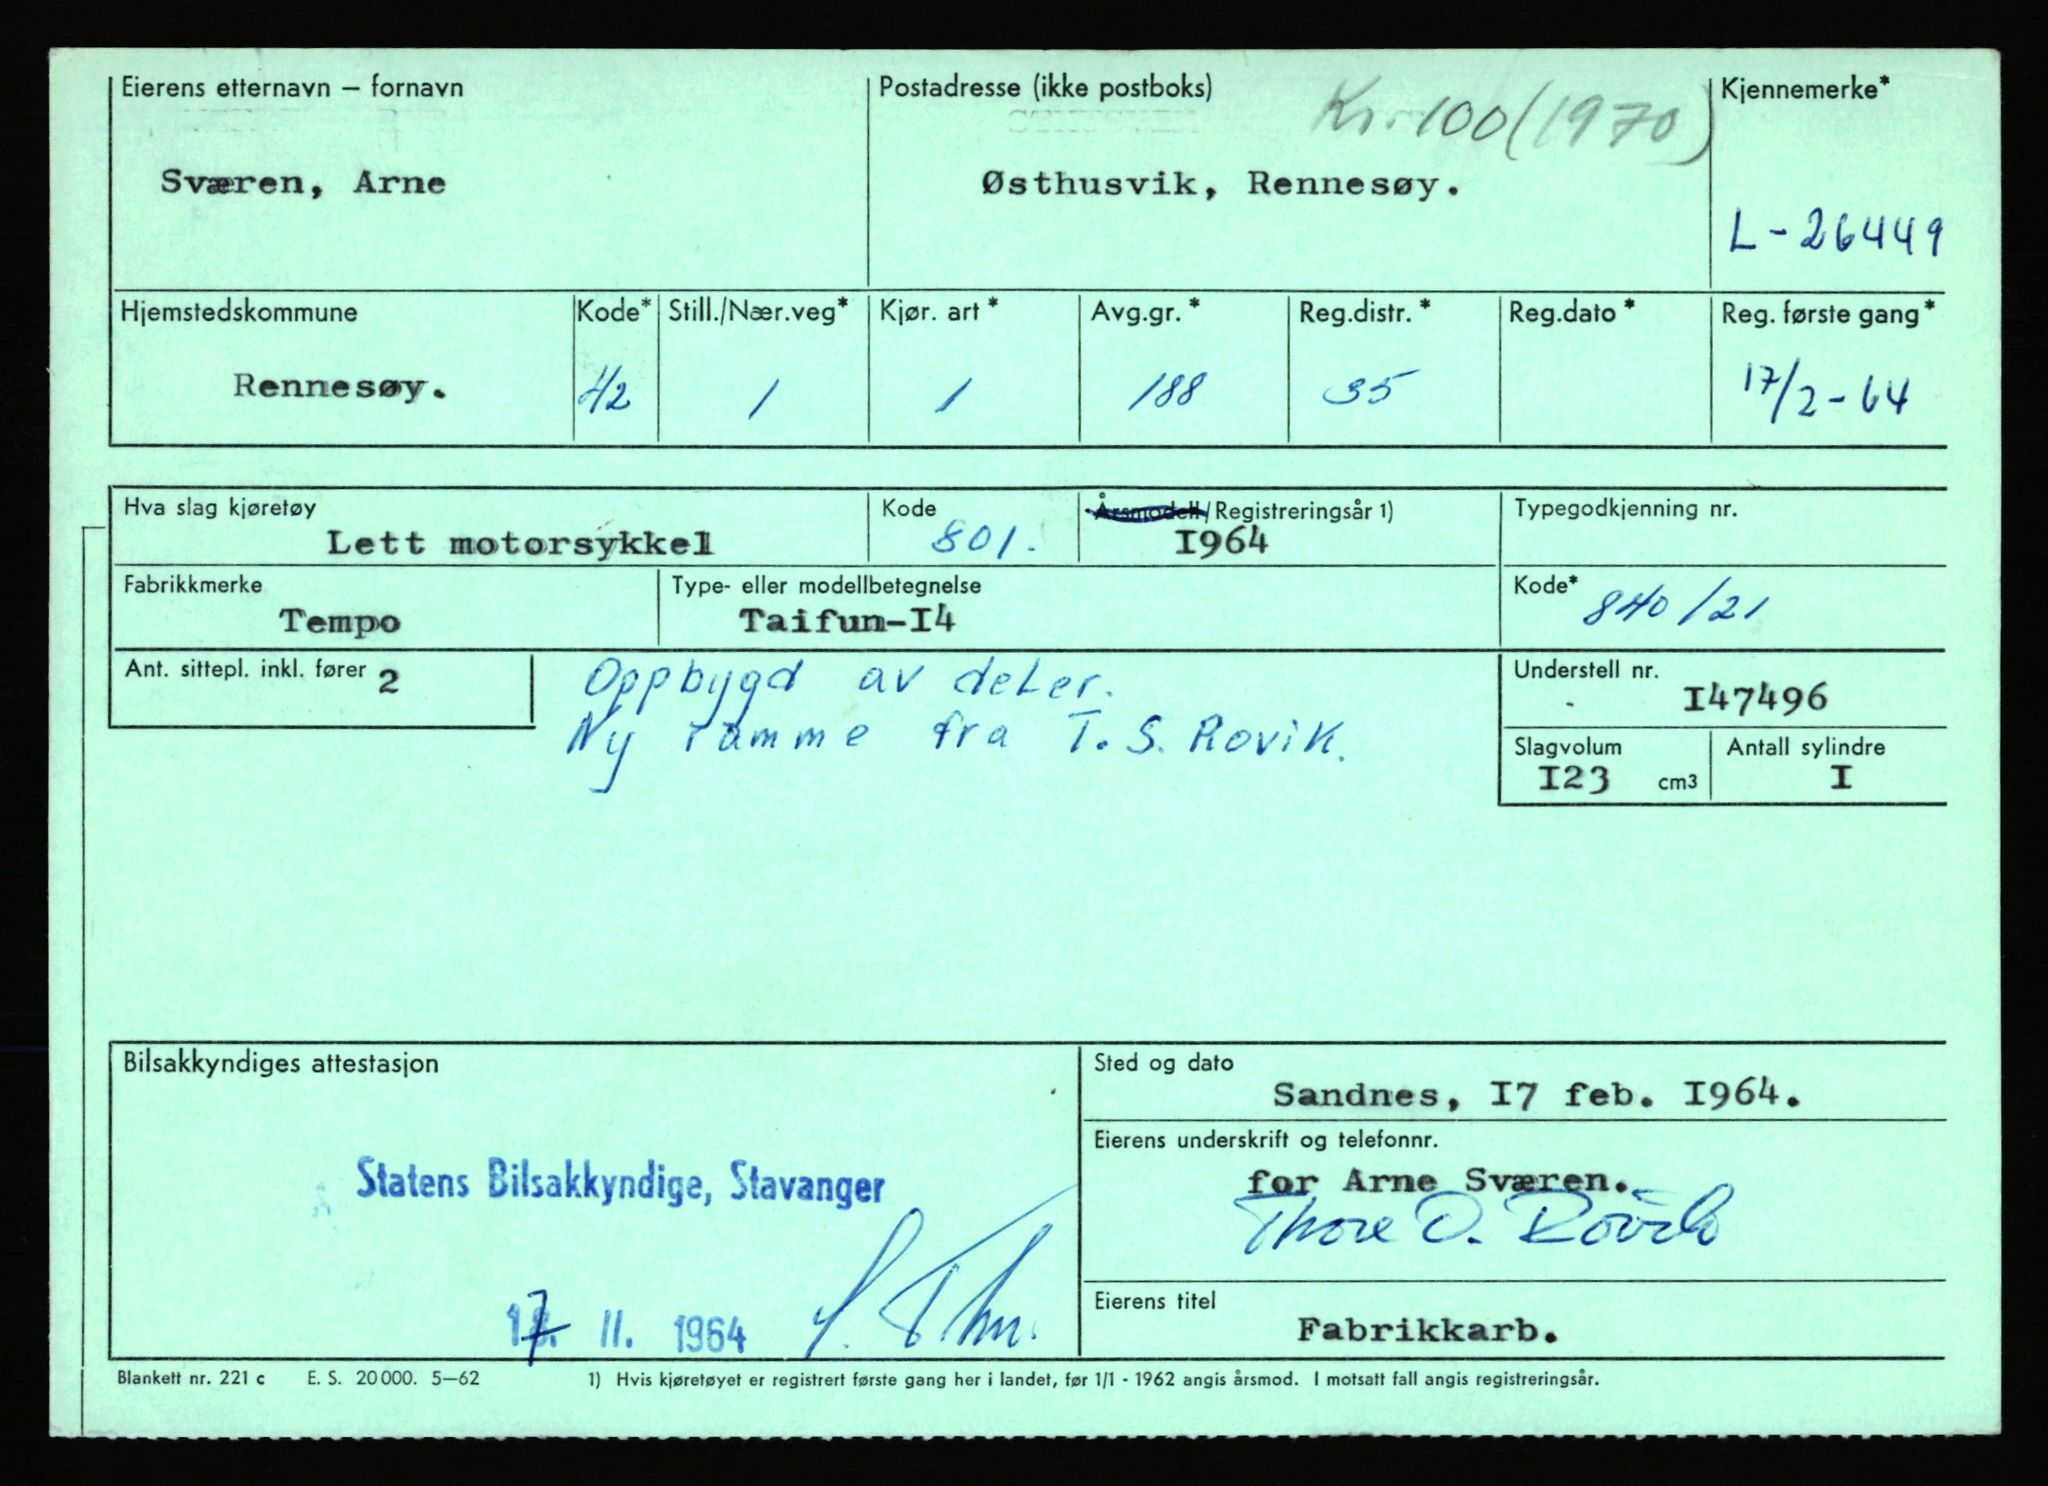 Eierens etternavn – fornavn
Postadresse (ikke postboks)
Kr. 100 (1970)
Kjennemerke*
Sværen, Arne
Østhusvik, Rennesøy.
L-26449
Hjemstedskommune
Kode*
Still./Nær.veg*
Kjør. art *
Avg.gr. *
Reg.distr. *
Reg.dato *
Reg. første gang*
Rennesøy.
42
1
1
188
35
17/2-64
Hva slag kjøretøy
Kode
Årsmodell/Registreringsår 1)
Typegodkjenning nr.
Lett motorsykkel
801.
I964
Fabrikkmerke
Type- eller modellbetegnelse
Kode*
Tempo
Taifun-I4
840/21
Ant. sittepl. inkl. fører 2
Oppbygd av deler.
Ny ramme fra T. S. Rovik.
Understell nr.
I47496
Slagvolum
Antall sylindre
I23 cm3
I
Bilsakkyndiges attestasjon
Sted og dato
Sandnes, I7 feb. I964.
Eierens underskrift og telefonnr.
Statens Bilsakkyndige, Stavanger
for Arne Sværen.
Thore O. Rovik
17 II. 1964
Eierens titel
Fabrikkarb.
Blankett nr. 221 c E. S. 20 000. 5–62
1) Hvis kjøretøyet er registrert første gang her i landet, før 1/1 - 1962 angis årsmod. I motsatt fall angis registreringsår.